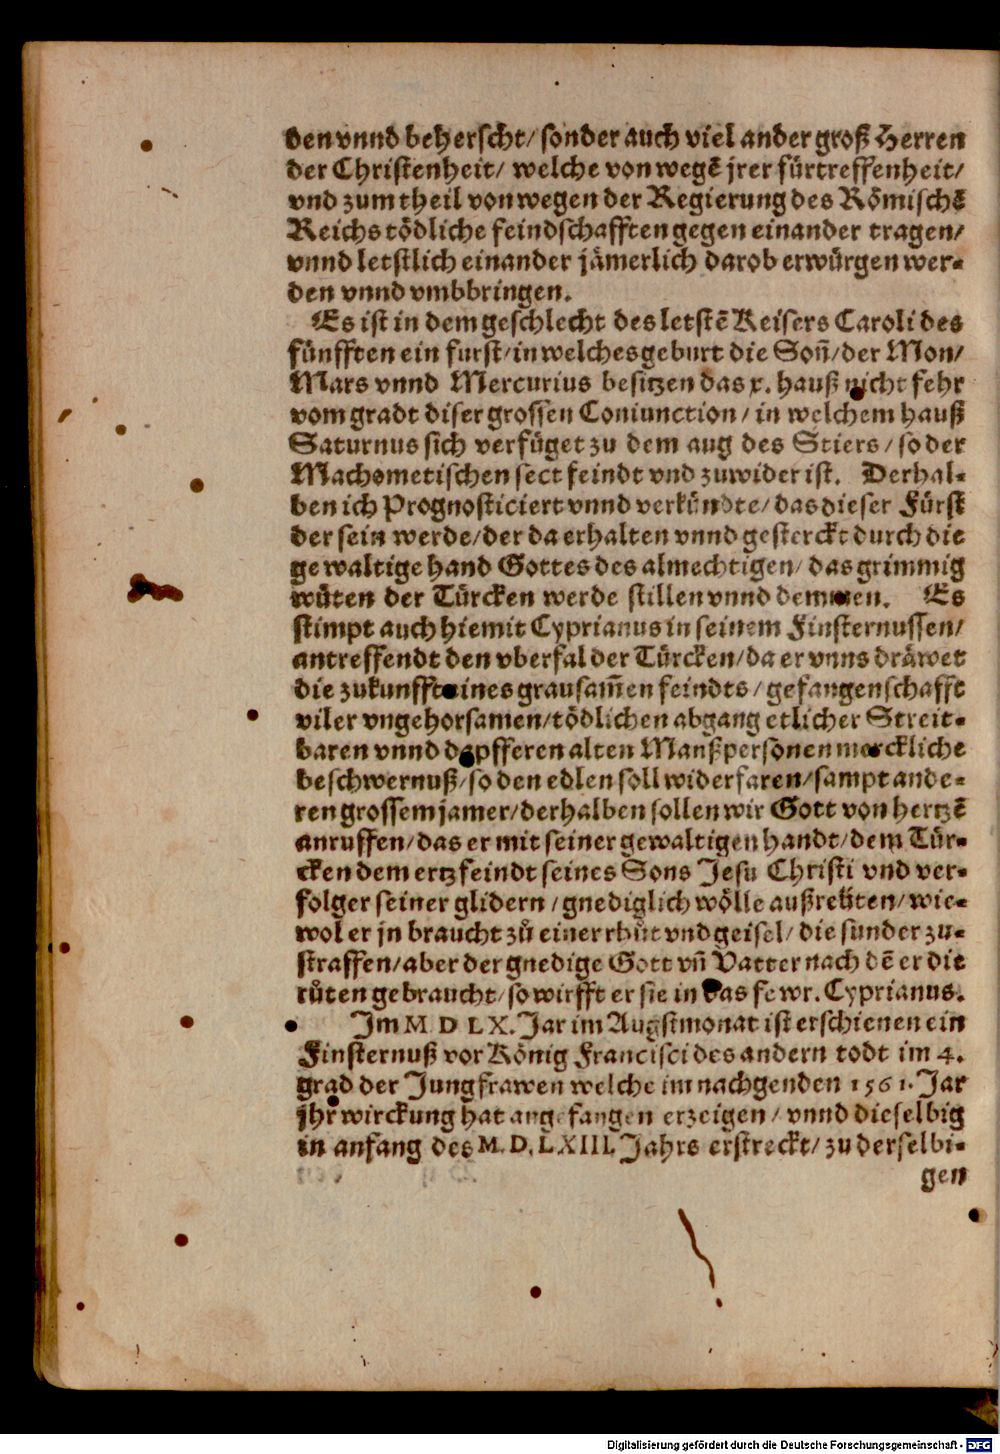 den vnnd beherscht/ sonder auch viel ander groß Herren
der Christenheit/ welche von wegē jrer fürtreffenheit/
vnd zum theil von wegen der Regierung des Römischē
Reichs tödliche feindschafften gegen einander tragen/
vnnd letstlich einander jämerlich darob erwürgen wer-
den vnnd vmbbringen.
Es ist in dem geschlecht des letstē Keisers Caroli des
fünfften ein furst/ in welches geburt die Soñ/ der Mon/
Mars vnnd Mercurius besitzen das x. hauß nicht fehr
vom gradt diser grossen Coniunction/ in welchem hauß
Saturnus sich verfüget zu dem aug des Stiers/ so der
Machometischen sect feindt vnd zuwider ist. Derhal-
ben ich Prognosticiert vnnd verkündte/ das dieser Fürst
der sein werde/ der da erhalten vnnd gesterckt durch die
gewaltige hand Gottes des almechtigen/ das grimmig
wüten der Türcken werde stillen vnnd demmen. Es
stimpt auch hiemit Cyprianus in seinem Finsternussen/
antreffendt den vberfal der Türcken/ da er vnns dräwet
die zukunfft eines grausam̄en feindts/ gefangenschafft
viler vngehorsamen/ tödlichen abgang etlicher Streit-
baren vnnd dapfferen alten Manßpersonen merckliche
beschwernuß/ so den edlen soll widerfaren/ sampt ande-
ren grossem jamer/ derhalben sollen wir Gott von hertzē
anruffen/ das er mit seiner gewaltigen handt/ dem Tür-
cken dem ertzfeindt seines Sons Jesu Christi vnd ver-
folger seiner glidern/ gnediglich wölle außreüten/ wie-
wol er jn braucht zů einer rhůt vnd geisel/ die sunder zu-
straffen/ aber der gnedige Gott vñ Vatter nach dē er die
růten gebraucht/ so wirfft er sie in das fewr. Cyprianus.
Im M D LX. Jar im Augstmonat ist erschienen ein
Finsternuß vor König Francisci des andern todt im 4.
grad der Jungfrawen welche im nachgenden 1561. Jar
jhr wirckung hat angefangen erzeigen/ vnnd dieselbig
in anfang des M. D. LXIII. Jahrs erstreckt/ zu derselbi-
gen
Digitalisierung gefördert durch die Deutsche Forschungsgemeinschaft - DFG